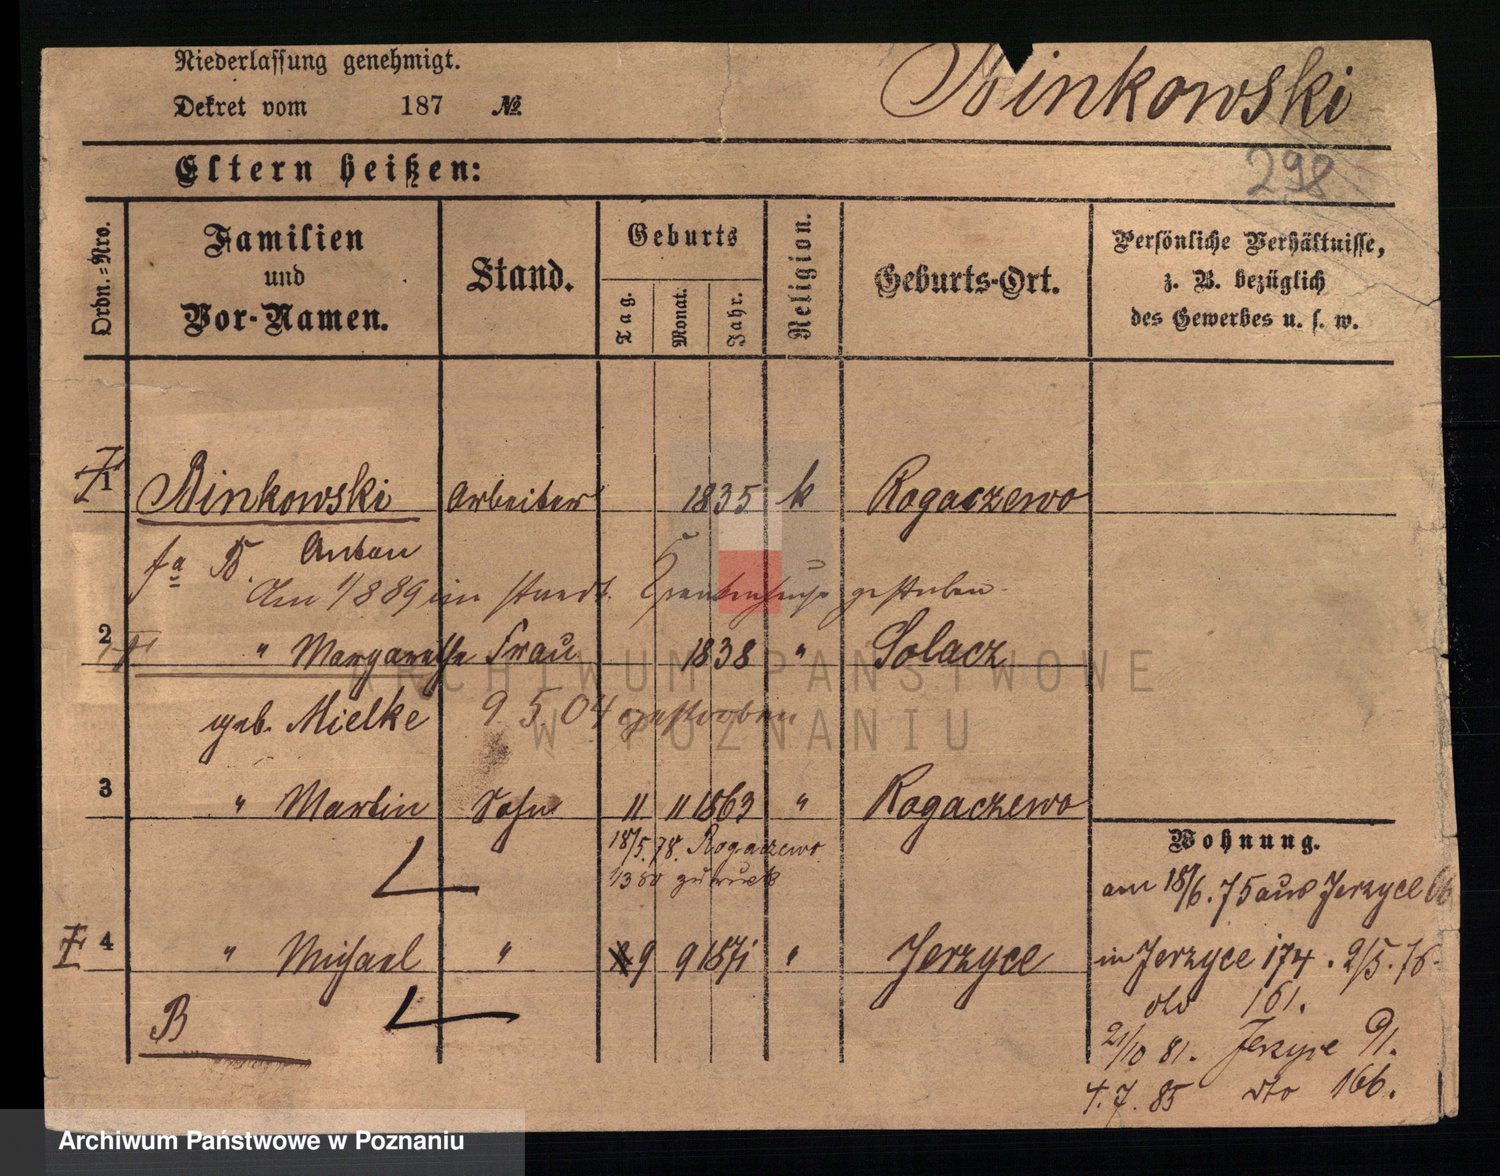 Niederlassung genehmigt.
Dekret vom 187 №
Binkowski
298
Eltern heißen:
Ordn.-Nro.
Familien und Vor-Namen.
Stand.
Geburts
Tag. Monat. Jahr.
Religion.
Geburts-Ort.
Persönliche Verhältnisse,
z. B. bezüglich
des Gewerbes u. s. w.
1 Binkowski Arbeiter 1835 k Rogaczewo
Anton
Am 1/8 89 im gestorben.
2 " Margarethe Frau 1838 " Solacz
geb. Mielke 9 5. 04 gestorben
3 " Martin Sohn 11 11 1863 " Rogaczewo
18/5. 78. Rogaczewo
zurück
Wohnung.
am 18/6. 75 aus Jerzyce 66
4 " Michael " 9 9 1871 " Jerzyce
in Jerzyce 174. 2/5. 76.
dto 161.
B
21/10 81. Jerzyce 91.
4. 7. 85 dto 166.
ARCHIWUM PAŃSTWOWE
W POZNANIU
Archiwum Państwowe w Poznaniu